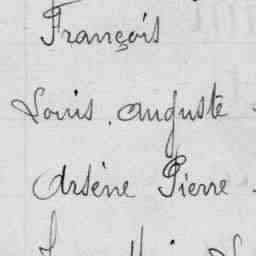 François
Louis. Auguste
Arsène Pierre